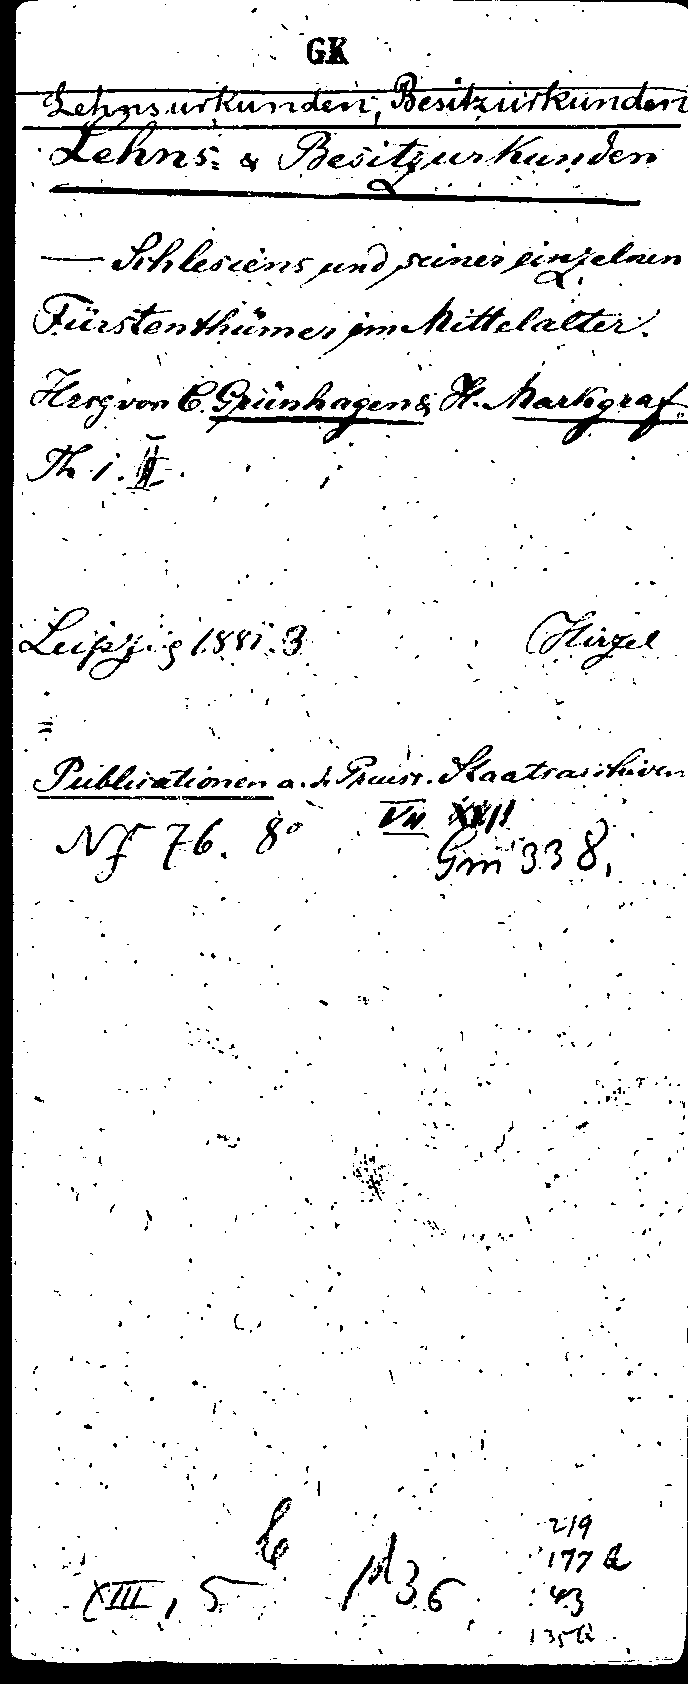 GK
Lehnsurkunden, Besitzurkunden
Lehns- & Besitzurkunden
— Schlesiens und seiner einzelnen
Fürstenthümer im Mittelalter.
Hrsg von C. Grünhagen & H. Markgraf.
Th 1. II.
Leipzig 1881. 3
Hirzel
Publicationen a. d. Preuss. Staatsarchiven
VII XVI
Nf 76. 8° Gm 338,
XIII, 5
36
219
177 a
43
135